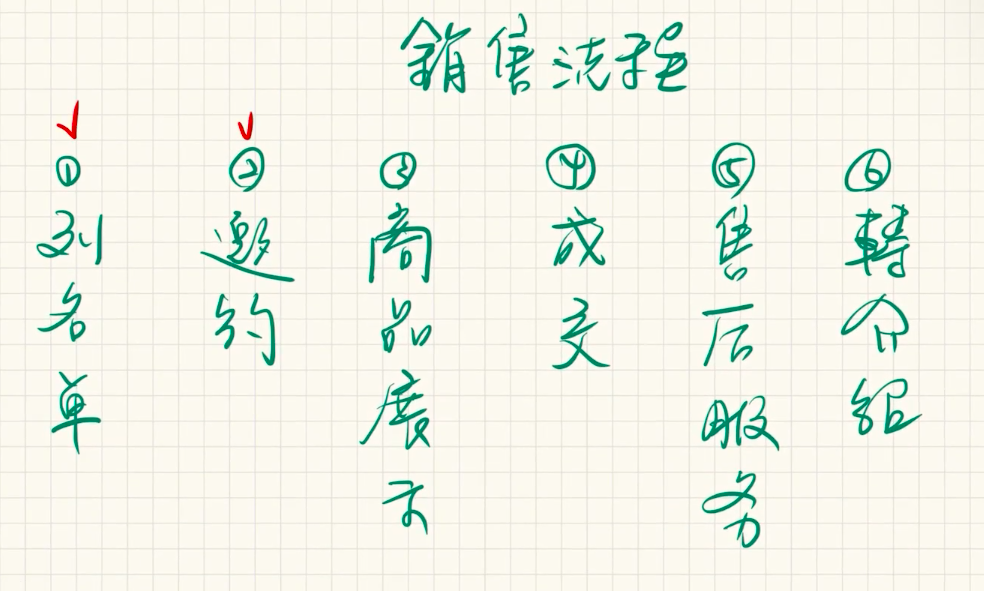 銷售流程
① 列名单
② 邀约
③ 商品展示
④ 成交
⑤ 售后服务
⑥ 轉介紹